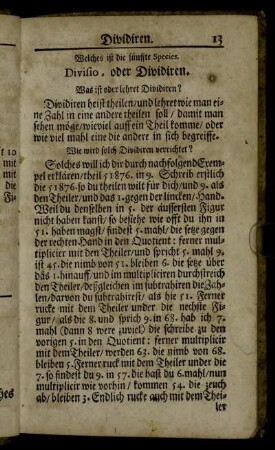 Dividiren. 13
Welches ist die fünffte Species.
Divisio, oder Dividiren.
Was ist oder lehret Dividiren?
Dividiren heist theilen/und lehret wie man ei-
ne Zahl in eine andere theilen soll / damit man
sehen möge/wieviel auff ein Theil komme/oder
wie viel mahl eine die andere in sich begreiffe.
Wie wird solch Dividiren verrichtet?
Solches will ich dir durch nachfolgend Exem-
pel erklären/theil 51876. in 9. Schreib erstlich
die 51876. so du theilen wilt für dich/und 9. als
den Theiler/und das 1. gegen der lincken/Hand.
Weil du denselben in 5. der äussersten Figur
nicht haben kanst/so besiehe wie offt du ihn in
51. haben magst/findest 5. mahl/die setze gegen
der rechten Hand in den Quotient: ferner mul-
tiplicir mit dem Theiler/und sprich 5. mahl 9.
ist 45. die nimb von 51. bleiben 6. die setze über
das 1. hinauff/und im multipliciren durchstreich
den Theiler/deßgleichen im subtrahiren die Zah-
len/darvon du subtrahirest/als hie 51. Ferner
rucke mit dem Theiler unter die nechste Fi-
gur / als die 8. und sprich 9. in 68. hab ich 7.
mahl (dann 8 were zuviel) die schreibe zu den
vorigen 5. in den Quotient: ferner multiplicir
mit dem Theiler/werden 63. die nimb von 68.
bleiben 5. Ferner rucke mit dem Theiler unter die
7. so findest du 9. in 57. die hast du 6. mahl/nun
multiplicir wie vorhin / kommen 54. die zeuch
ab/bleiben 3. Endlich rucke auch mit dem Thei-
ler